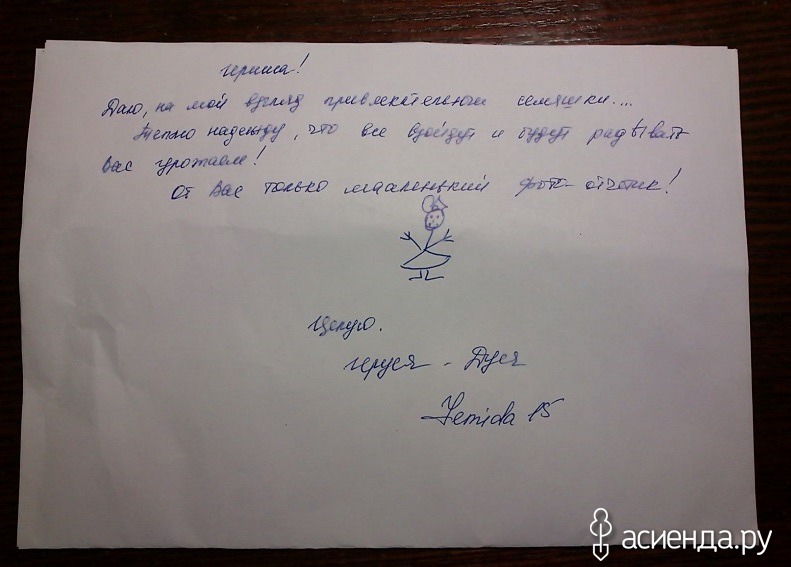 Даю, на мой взгляд привлекательныи семяшки....
Теплю надежду, что все взойдут и будут радывать
Вас урожаем!
От Вас только мааленький фото-отчетик!
Целую.
Дуся
Femida 15
асиенда.ру